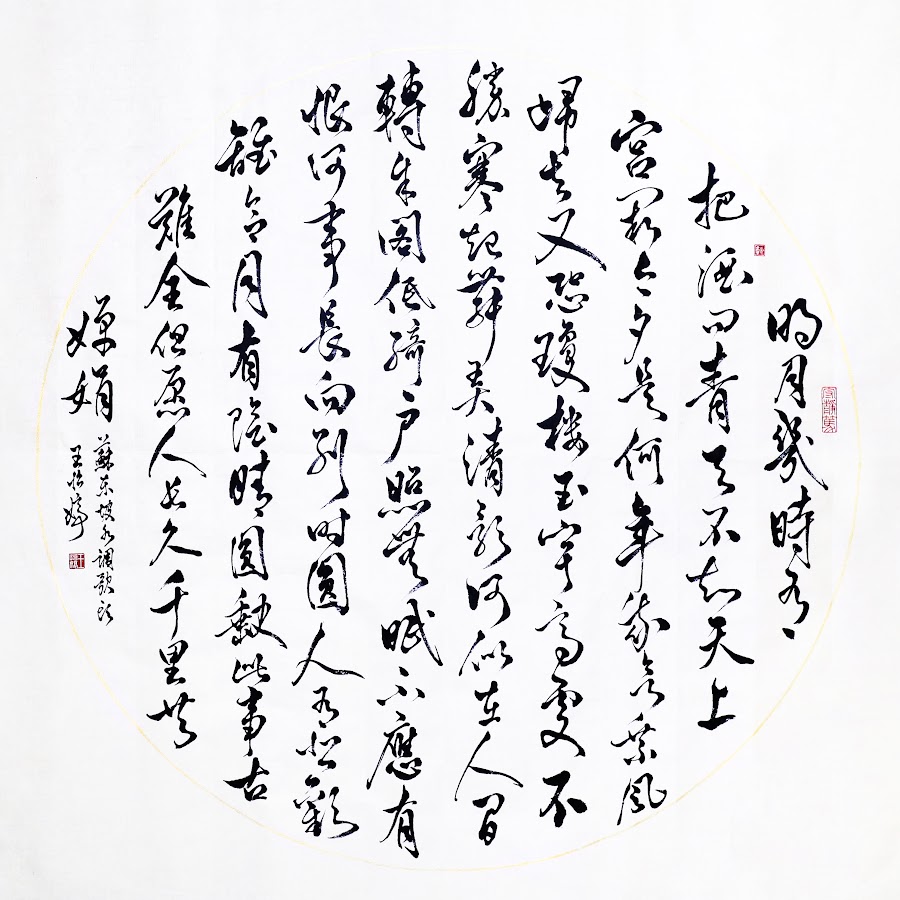 明月幾時有
把酒問青天不知天上
宮闕今夕是何年我欲乘風
歸去又恐瓊樓玉宇高處不
勝寒起舞弄清影何似在人間
轉朱閣低綺戶照無眠不應有
恨何事長向別時圓人有悲歡
離合月有陰晴圓缺此事古
難全但愿人長久千里共
嬋娟
蘇东坡水调歌头
王怡婷